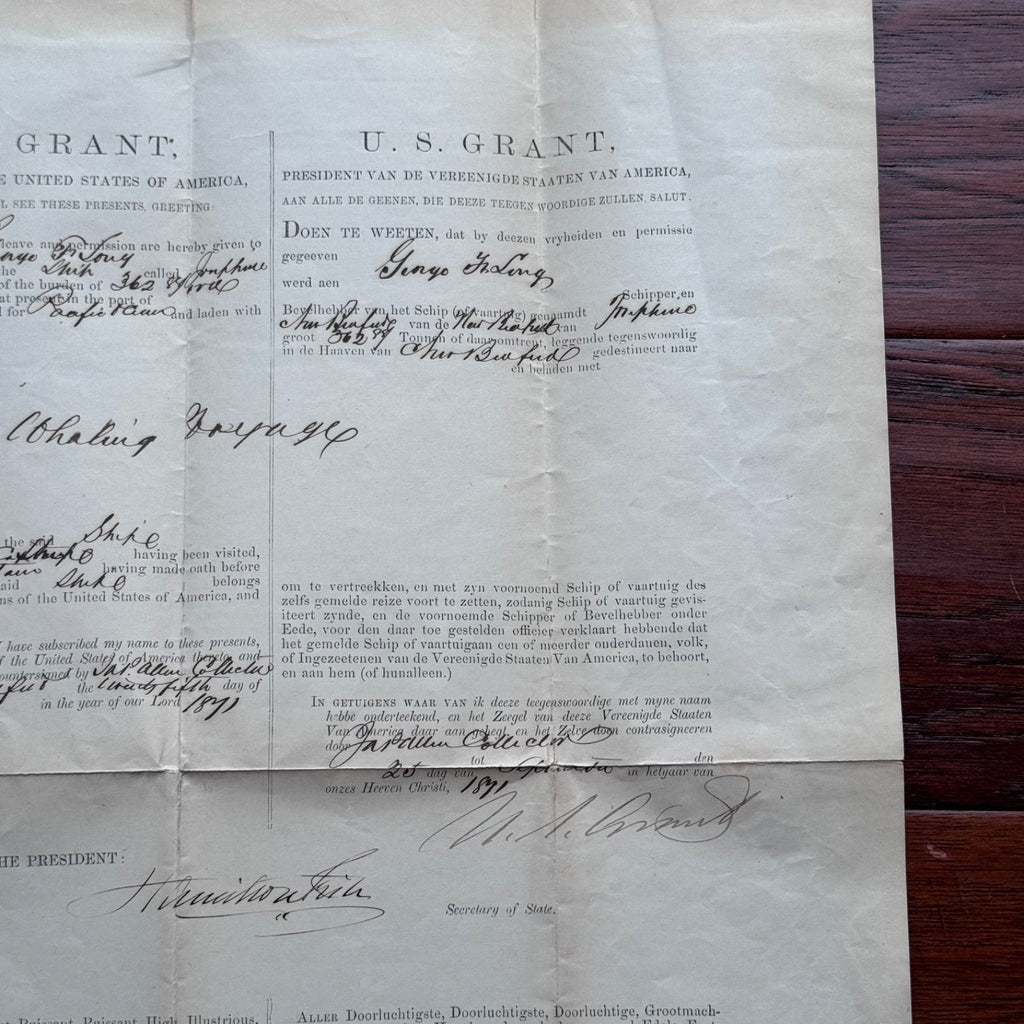 GRANT,
E UNITED STATES OF AMERICA,
L SEE THESE PRESENTS, GREETING:
leave and permission are hereby given to
Long
the Ship called Josephine
of the burden of 362
at present in the port of
d for Pacific Ocean and laden with
Whaling Voyage
the said Ship
having been visited,
having made oath before
aid Ship belongs
ns of the United States of America, and
I have subscribed my name to these presents,
f the United States of America thereto, and
ountersigned by Jas. Allen Collector
the twenty fifth day of
in the year of our Lord 1871
HE PRESIDENT:
Hamilton Fish
U. S. GRANT,
PRESIDENT VAN DE VEREENIGDE STAATEN VAN AMERICA,
AAN ALLE DE GEENEN, DIE DEEZE TEEGENWOORDIGE ZULLEN, SALUT.
DOEN TE WEETEN, dat by deezen vryheiden en permissie
gegeeven
George F. Long
werd aen
Schipper, en
Bevelhebber van het Schip (of vaartuig) genaamdt Josephine
New Bedford van de New Bedford van
groot 362 Tonnen of daaromtrent, leggende tegenswoordig
in de Haaven van New Bedford gedestineert naar
en beladen met
om te vertreekken, en met zyn voornoemd Schip of vaartuig des
zelfs gemelde reize voort te zetten, zodanig Schip of vaartuig gevis-
iteert zynde, en de voornoemde Schipper of Bevelhebber onder
Eede, voor den daar toe gestelden officier verklaart hebbende dat
het gemelde Schip of vaartuigaan een of meerder onderdanen, volk,
of Ingezeetenen van de Vereenigde Staaten Van America, to behoort,
en aan hem (of hunalleen.)
IN GETUIGENS WAAR VAN ik deeze teegenswoordige met myne naam
hebbe onderteekend, en het Zeegel van deeze Vereenigde Staaten
Van America daar aan gehegt, en het Zelve doen contrasigneeren
door Jas Allen Collector
tot den
25 dag van September in hetjaar van
onzes Heeven Christi, 1871
U. S. Grant
Secretary of State.
t Puissant, Puissant, High Illustrious,
ALLER Doorluchtigste, Doorluchtigste, Doorluchtige, Grootmach-